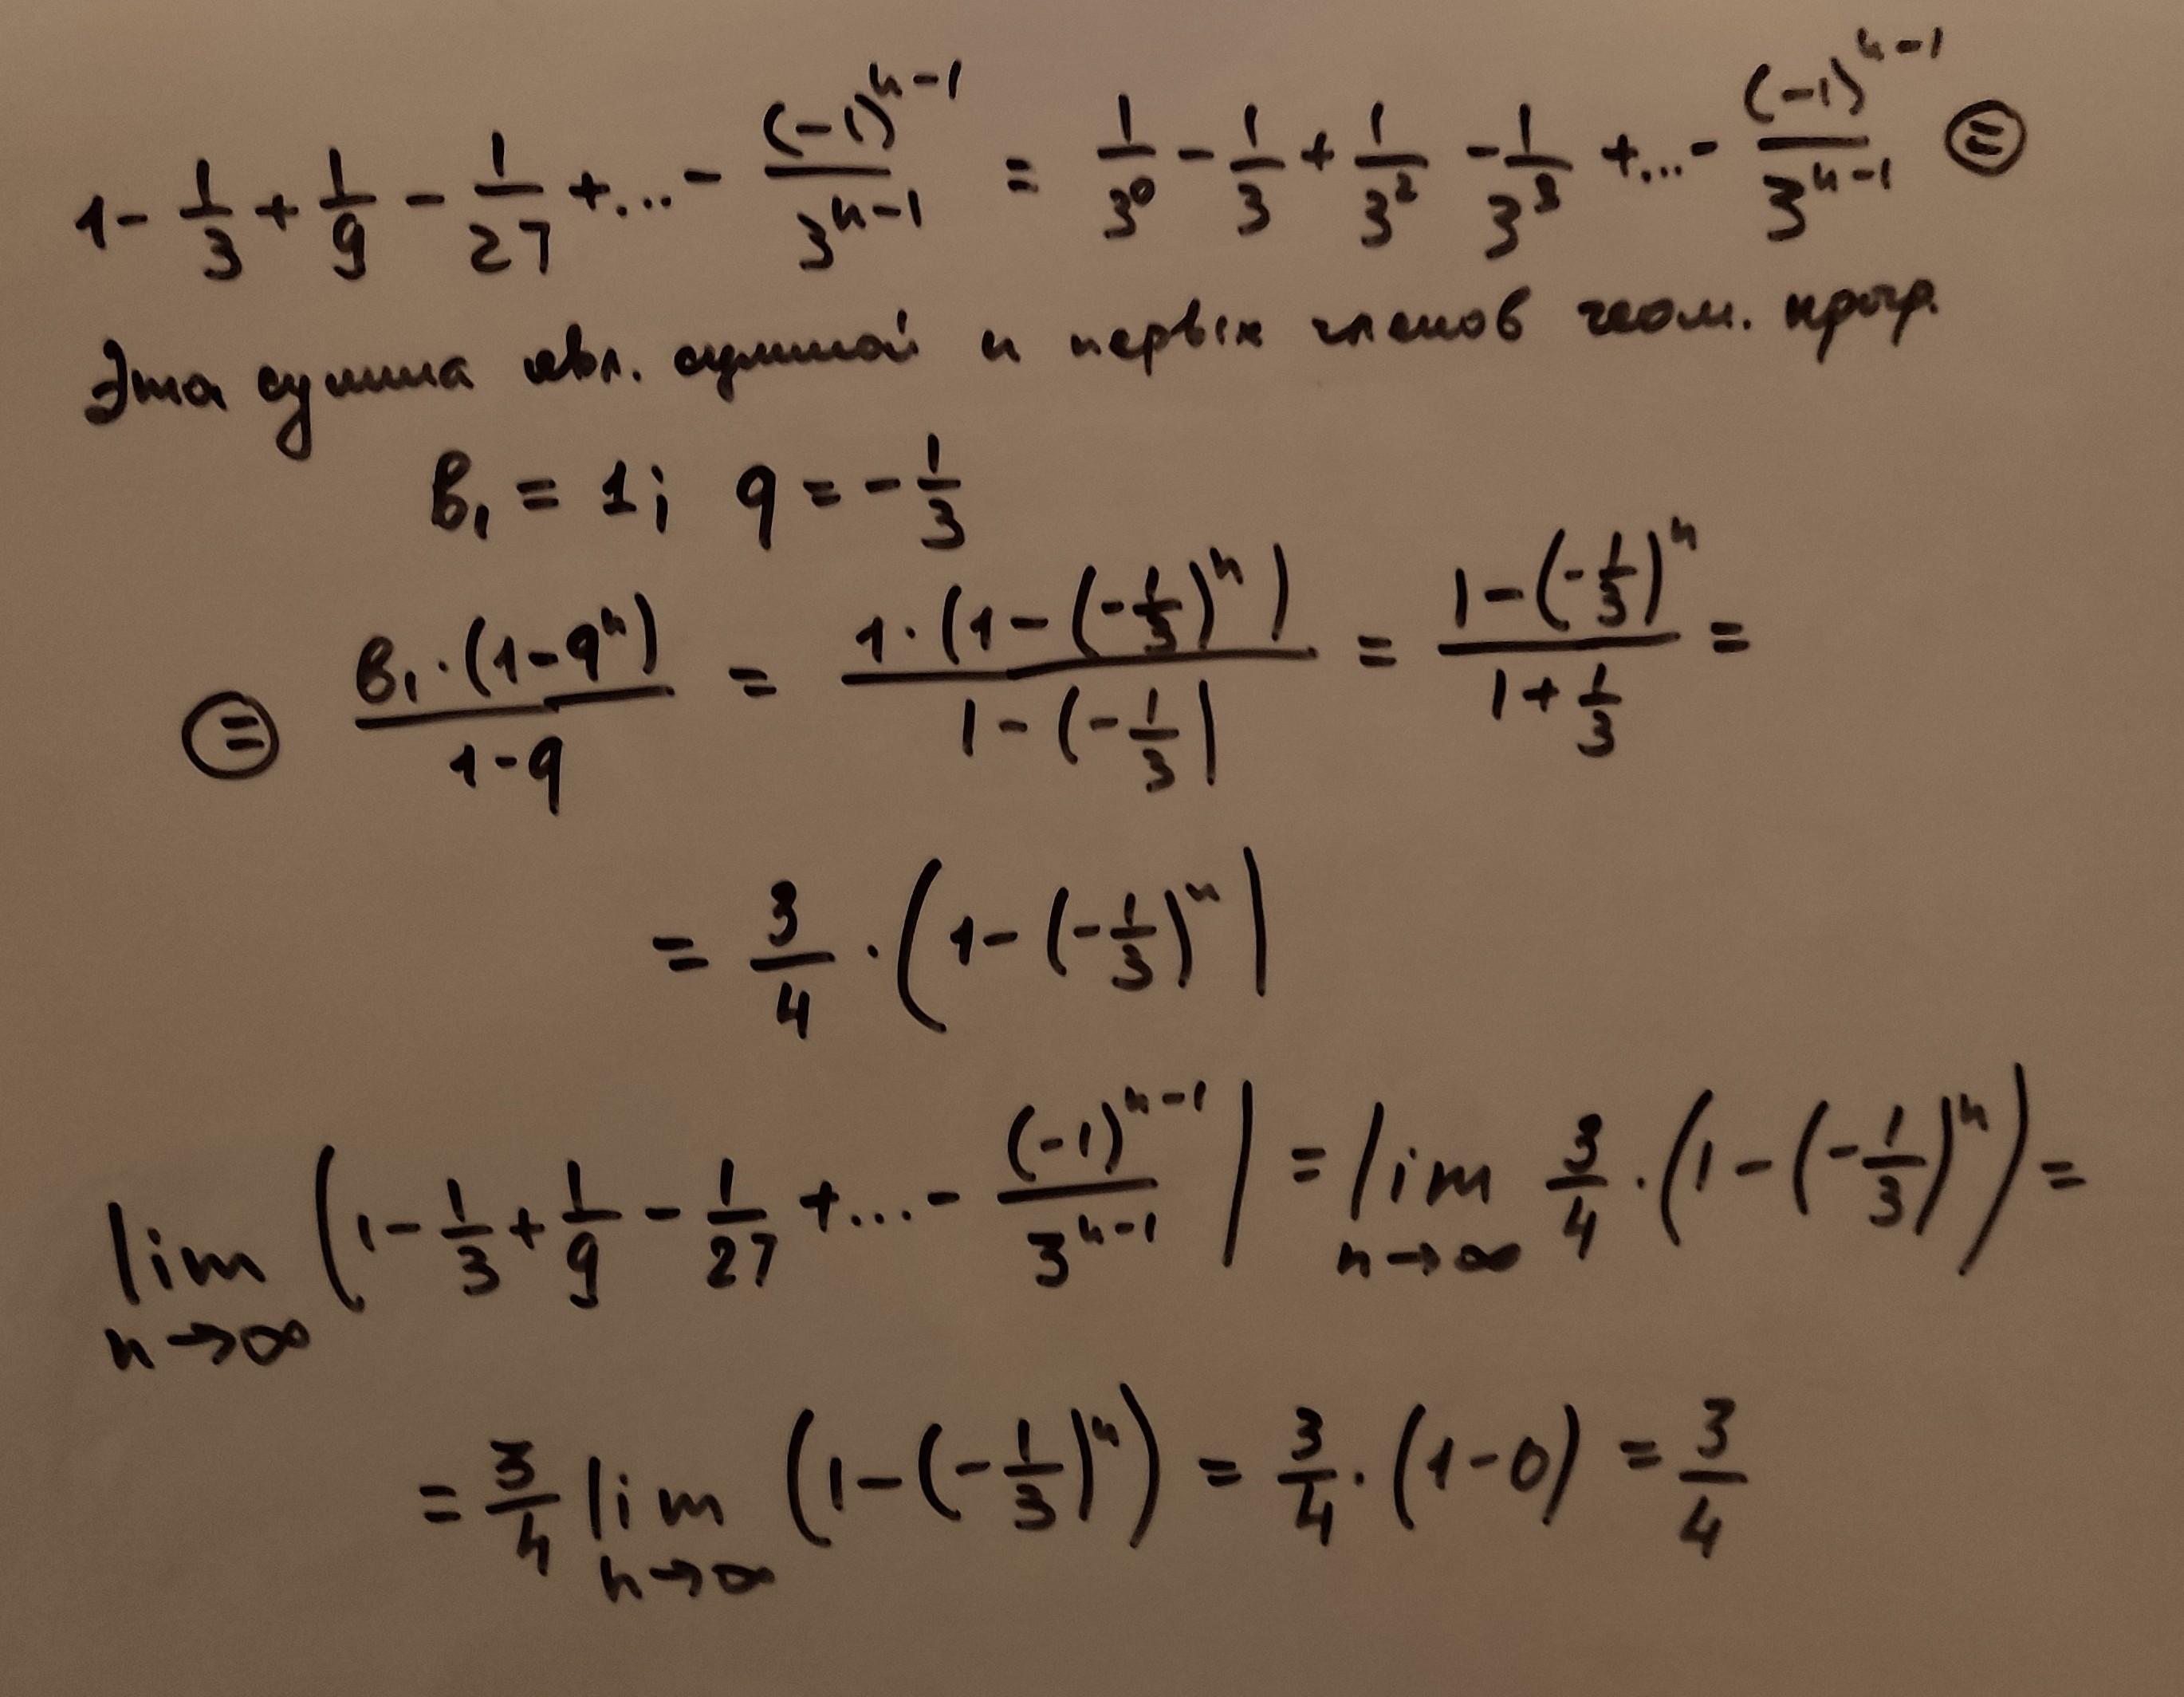 1 - 1/3 + 1/9 - 1/27 + ... - (-1)^(n-1)/3^(n-1) = 1/3^0 - 1/3 + 1/3^2 - 1/3^3 + ... - (-1)^(n-1)/3^(n-1) ⊜
Эта сумма явл. суммой n первых членов геом. прогр.
b₁ = 1; q = -1/3
⊜ b₁·(1-q^n)/(1-q) = 1·(1-(-1/3)^n)/(1-(-1/3)) = (1-(-1/3)^n)/(1+1/3) =
= 3/4 · (1-(-1/3)^n)
lim n→∞ (1 - 1/3 + 1/9 - 1/27 + ... - (-1)^(n-1)/3^(n-1)) = lim n→∞ 3/4 · (1-(-1/3)^n) =
= 3/4 lim n→∞ (1-(-1/3)^n) = 3/4 · (1-0) = 3/4